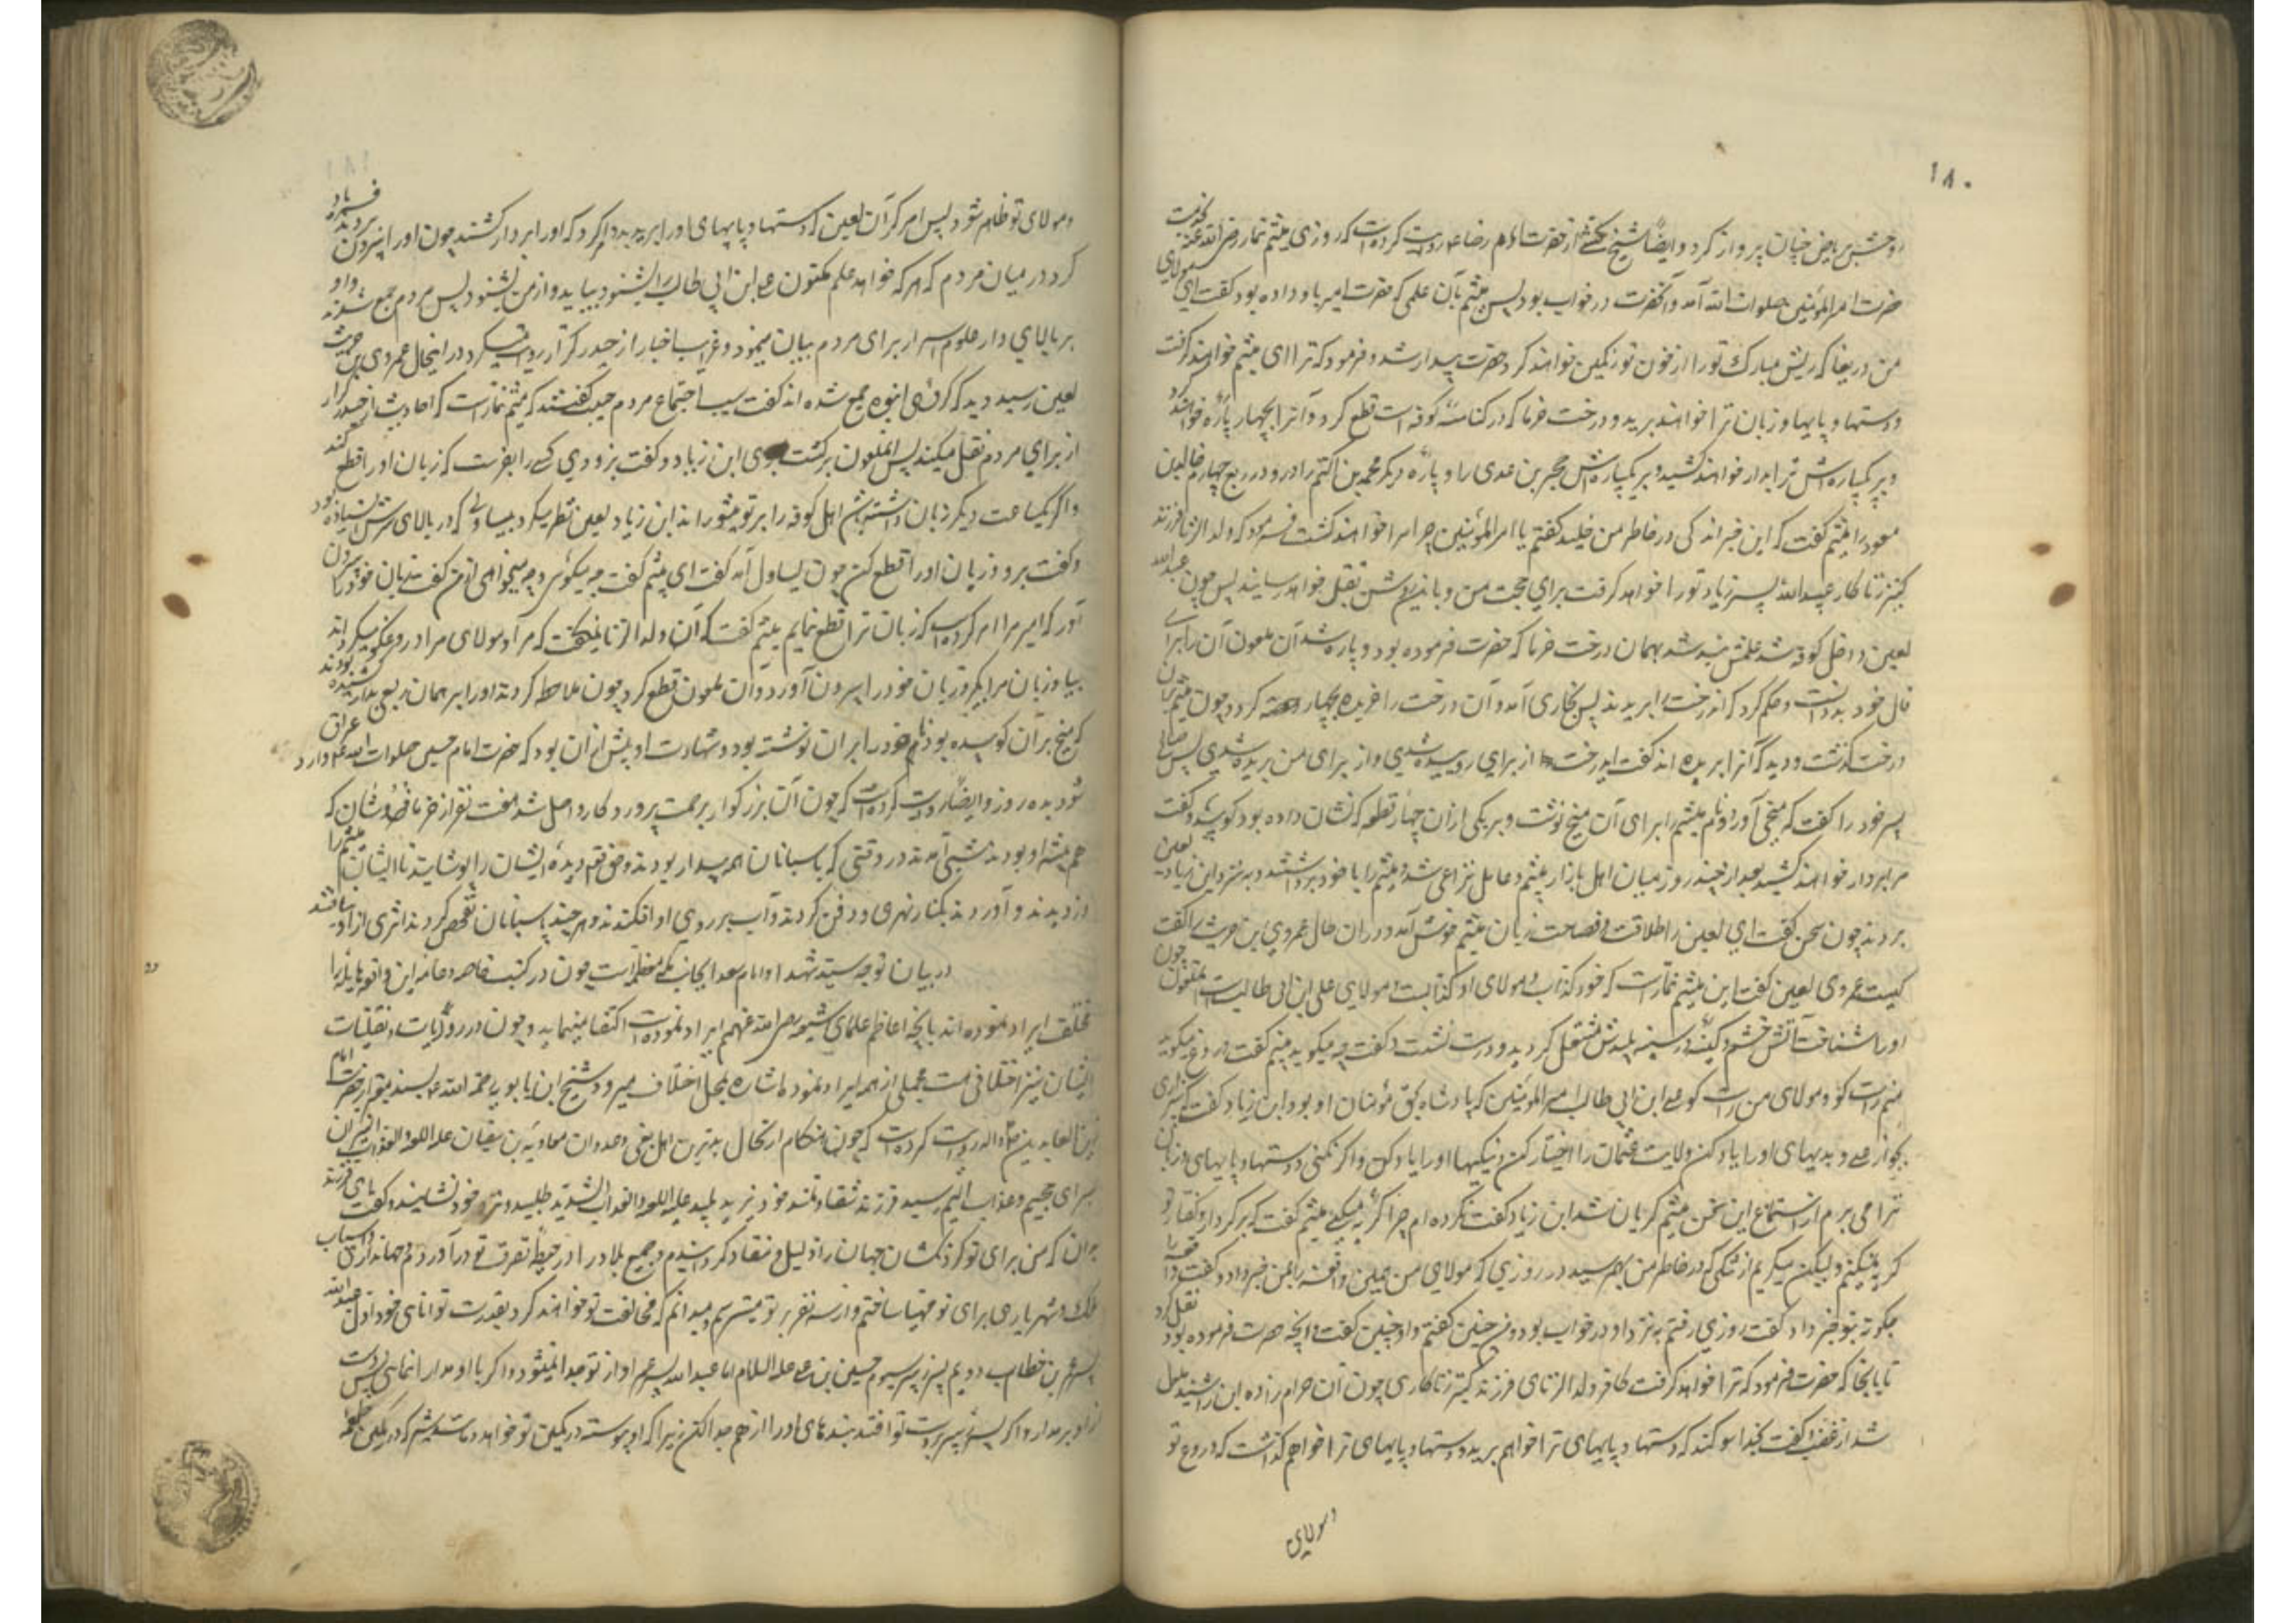 ۱۸۰
روحش بریاض جنان پرواز کرد و ایضاً شیخ کشی از حضرت امام رضا ع روایت کرده است که روزی میثم تمار رضی الله عنه بخدمت
حضرت امیر المؤمنین صلوات الله آمد و آنحضرت در خواب بود پس میثم بآن علمی که حضرت امیر باو داده بود گفت ای مولای
من دریغا که ریش مبارک تو را از خون تو رنگین خواهند کرد حضرت بیدار شد و فرمود که ترا ای میثم خواهند گرفت
و دستها و پایها و زبان ترا خواهند برید و درخت خرما که در کناسهٔ کوفه است قطع کرد و آنرا بچهار پاره خواهند کرد
و بر یکپاره اش ترا بدار خواهند کشید و بر یکپاره اش حجر بن عدی را و پارهٔ دیگر محمد بن اکتم را و در ربع چهارم خالد بن
مسعود را میثم گفت که این خبر اندکی در خاطر من خلید گفتم یا امیر المؤمنین چرا مرا خواهند کشت فرمود که ولد الزنا فرزند
کنیز زناکار عبید الله پسر زیاد تو را خواهد گرفت برای محبت من و باین روش بقتل خواهد رسانید پس چون عبد الله
لعین داخل کوفه شد علمش بند شد بهمان درخت خرما که حضرت فرموده بود و پاره شد آن ملعون آن را برای
فال خود بد دانست و حکم کرد که آندرخت را بریدند پس نجاری آمد و آن درخت را خریده بچهار حصه کرد و چون میثم بآن
درخت گذشت و دید که آنرا بریده اند گفت ایدرخت از برای من روییده شدی و از برای من بریده شدی پس صالح
پسر خود را گفت که میخی آور او نام میثم را برای آن میخ نوشت و بر یکی از آن چهار قطعه که نشان داده بود کوبید و گفت
مرا بر دار خواهند کشید بعد از چند روز میان اهل بازار میثم و عامل نزاعی شد و میثم را با خود برداشتند و به نزد ابن زیاد لعین
بردند چون سخن گفت آن لعین را طلاقت و فصاحت زبان میثم خوش آمد در آن حال عمروی بن حریث گفت
کیست عمروی لعین گفت این میثم تمار است که خود کذاب و مولای او کذابست و مولای علی ابن ابی طالب است چون آنملعون
او را شناخت آتش خشم و کینه در سینه پلیدش مشتعل گردید و درست نشست و گفت چه میگوید میثم گفت دروغ میگوید
منم راست گو و مولای من راست گو علی ابن ابی طالب امیر المؤمنین که پادشاه بحق مؤمنان او بود ابن زیاد گفت بیزاری
بجو از علی و بدیهای او را یاد کن ولایت عثمان را اختیار کن و نیکیها او را یاد کن و اگر نکنی و دستها و پایهای و زبان
ترا می برم از استماع این سخن میثم گریان شد ابن زیاد گفت نکرده ام چرا گریه میکنی میثم گفت که بر کردار و گفتار تو
گریه نمیکنم ولیکن میگریم از شکی که در خاطر من بهم رسید در روزی که مولای من چنین واقعه را بمن خبر داد و گفت
چگونه بتو خبر داد گفت روزی رفتم به نزد او در خواب بود و من چنین گفتم و او چنین گفت و آنچه حضرت فرموده بود نقل کرد
تا باینجا که حضرت فرمود که ترا خواهد گرفت کافر ولد الزنای فرزند کنیز زناکاری چون آن حرام زاده این را شنید
شد از غضب گفت بخدا سوگند که دستها و پایهای ترا خواهم برید و دستها و پایهای ترا خواهم گذاشت که دروغ تو
و مولای
و مولای تو ظاهر شود پس امر کرد آن لعین که دستها و پایهای او را بریدند و امر کرد که او را بر دار کشند چون او را بیرون بردند فریاد
کرد در میان مردم که هر که خواهد علم مکنون علی ابن ابی طالب را بشنود بیاید و از من بشنود پس مردم جمع شدند و او
بر بالای دار علوم اسرار برای مردم بیان مینمود و غرایب اخبار از حیدر کرار روایت میکرد در اینحال عمروی بن حریث
لعین رسید دید که گروهی انبوه جمع شده اند گفت سبب اجتماع مردم چیست گفتند که میثم تمار است که احادیث از حیدر کرار
از برای مردم نقل میکند پس آنملعون برگشت بسوی ابن زیاد و گفت بزودی کسی را بفرست که زبان او را قطع کند
و اگر یکساعت دیگر زبان داشته باشد اهل کوفه را بر تو میشوراند ابن زیاد لعین نظر کرد بیساولی که در بالای سرش ایستاده بود
و گفت برو و زبان او را قطع کن چون یساول آمد گفت ای میثم گفت چه میگوئی و چه میخواهی از من گفت زبان خود را بیرون
آور که امیر مرا امر کرده است که زبان ترا قطع نمایم میثم گفت که آن ولد الزنا نمیگفت که مرا و مولای مرا دروغگو میگرداند
بیا و زبان مرا بگیر و زبان خود را بیرون آورد و آن ملعون قطع کرد چون ملاحظه کردند او را بر همان ربعی بدار کشیده بودند
که میخ بر آن کوبیده بود و نام خود را بر آن نوشته بود و شهادت او پیش از آن بود که حضرت امام حسین صلوات الله علیه وارد عراق
شود بده روز و ایضاً روایت کرده است که چون آن بزرگوار برحمت پروردگار واصل شد هفت نفر از خرما فروشان که
هم پیشه او بودند شبی آمدند در وقتی که پاسبانان همه بیدار بودند و حق تعالی دیدهٔ ایشان را پوشانید تا ایشان میثم را
دزدیدند و آوردند بکنار نهری و دفن کردند و آب بر روی او افکندند و هر چند پاسبانان تفحص کردند اثری از او نیافتند
در بیان توجه سید شهدا و امام سعدا بجانب مکه معظمه است چون در کتب خاصه و عامه این واقعه هایله را
مختلف ایراد نموده اند بآنچه اعاظم علمای شیعه رضی الله عنهم ایراد نموده است اکتفا مینماید و چون در روایات و نقلیات
ایشان نیز اختلافی هست مجملی از همه ایراد نموده باشاره بمحل اختلاف میرود شیخ ابن بابویه رحمة الله علیه بسند معتبر از حضرت امام
زین العابدین ع روایت کرده است که چون هنگام ارتحال بدترین اهل بغی و عدوان معاویه بن سفیان علیه اللعنه والعذاب النیران
بسرای جحیم و عذاب الیم رسید فرزند شقاوتمند خود یزید پلید علیه اللعنه والعذاب الشدید طلبید و نزد خود نشانید و گفت ای فرزند
بدان که من برای تو گردنکشان جهان را ذلیل و منقاد گردانیدم و جمیع بلاد را در حیطهٔ تصرف تو در آوردم و جهانداری و اسباب
ملک و شهریاری برای تو مهیا ساختم و از سه نفر بر تو میترسم و میدانم که مخالفت تو خواهند کرد بقدرت توانای خود اول عبد الله
پسر عمر بن خطاب دویم پسر زبیر سیوم حسین بن علی علیه السلام اما عبد الله پسر عمر او از تو جدا نمیشود و اگر با او مدارا نمائی پس دست
از او بر مدار و اگر پسر زبیر بدست تو افتد بندهای او را از هم جدا کن زیرا که او پیوسته در کمین تو خواهد بود مانند شیر که در کمین طعمه